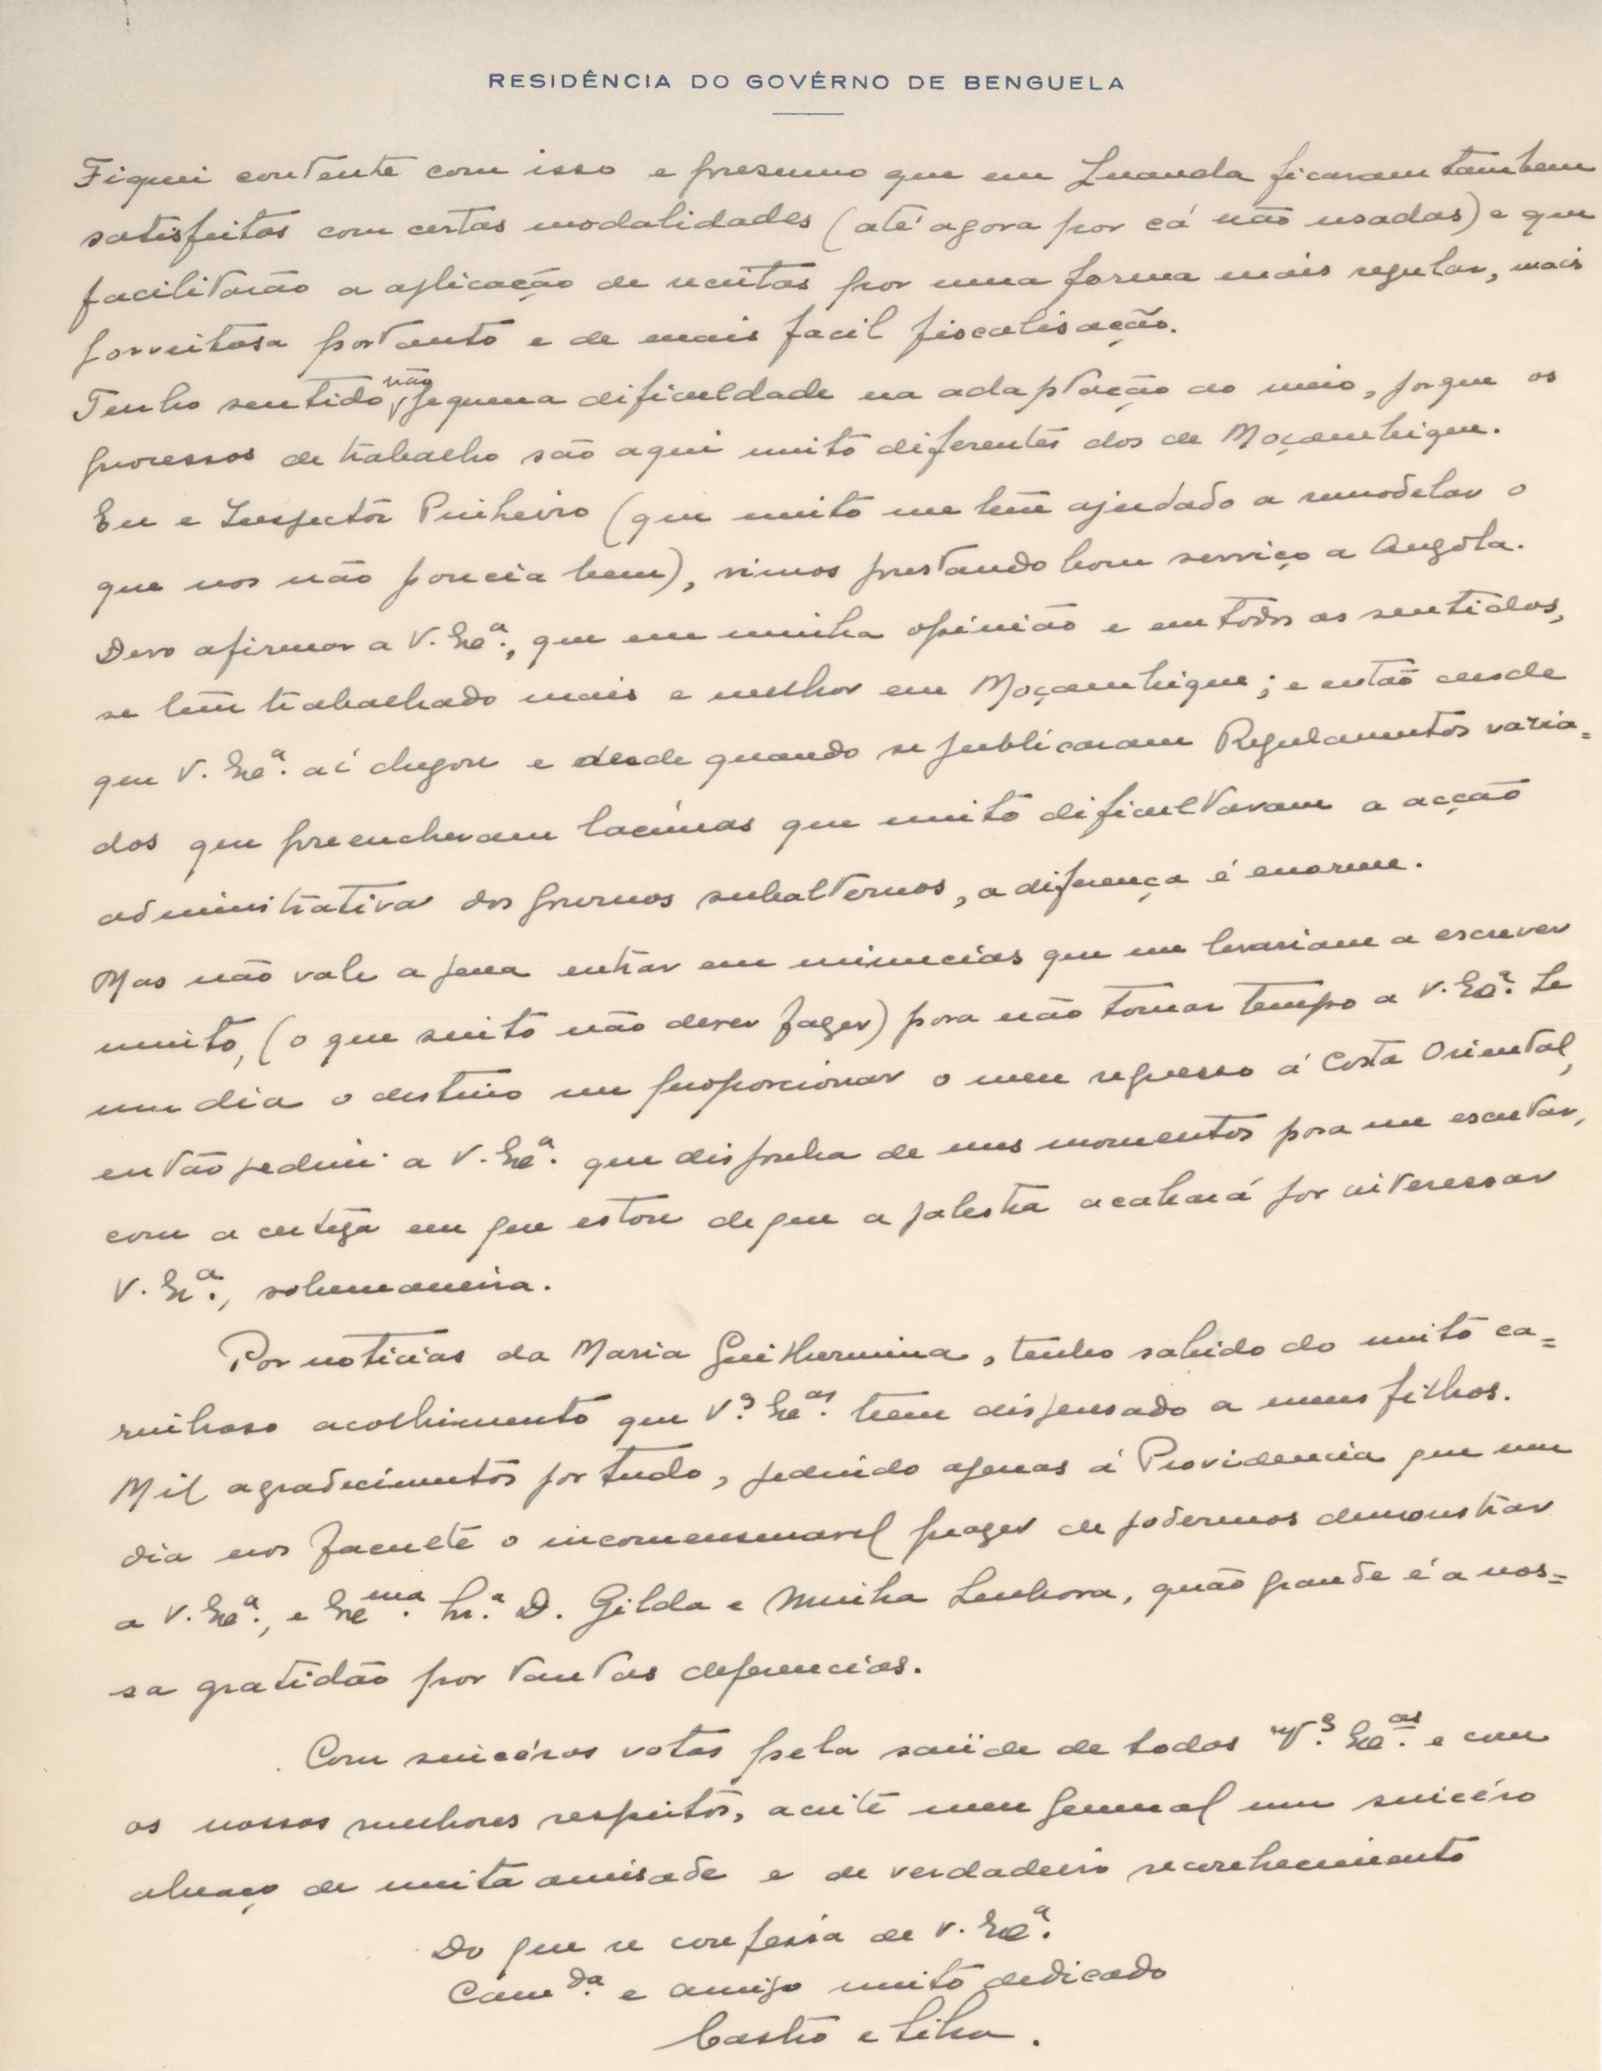 RESIDÊNCIA DO GOVÊRNO DE BENGUELA
Fiquei contente com isso e presumo que em Luanda ficaram tambem
satisfeitos com certas modalidades (até agora por cá não usadas) e que
facilitarão a aplicação de receitas por uma forma mais regular, mais
proveitosa portanto e de mais facil fiscalisação.
Tenho sentido não pequena dificuldade na adaptação ao meio, porque os
processos de trabalho são aqui muito diferentes dos de Moçambique.
Eu e Inspector Pinheiro (que muito me tem ajudado a remodelar o
que nos não parecia bem), vimos prestando bom serviço a Angóla.
Devo afirmar a V. Exª., que em minha opinião e em todos os sentidos,
se tem trabalhado mais e melhor em Moçambique; e então desde
que V. Exª. aí chegou e desde quando se publicaram Regulamentos varia=
dos que preencheram lacúnas que muito dificultavam a acção
administrativa dos governos subalternos, a diferença é enorme.
Mas não vale a pena entrar em minucias que me levariam a escrever
muito, (o que sinto não dever fazer) para não tomar tempo a V. Exª. Se
um dia o destino me proporcionar o meu regresso á Costa Oriental,
então pedirei a V. Exª. que disponha de uns momentos para me escutar,
com a certeza em que estou de que a palestra acabará por interessar
V. Exª., sobremaneira.
Por noticias da Maria Guilhermina, tenho sabido do muito ca=
rinhoso acolhimento que V.ˢ Exᵃˢ. teem dispensado a meus filhos.
Mil agradecimentos por tudo, pedindo apenas á Providencia que um
dia nos faculte o incomensuravel prazer de podermos demonstrar
a V. Exª., e Exᵐᵃ. Srª. D. Gilda e Minha Senhora, quão grande é a nos=
sa gratidão por tantas deferencias.
Com sincéros votos pela saúde de todas V.ˢ Exᵃˢ. e com
os nossos melhores respeitos, aceite meu General um sincéro
abraço de muita amisade e de verdadeiro reconhecimento
Do que se confessa de V. Exª.
Camᵈᵃ. e amigo muito dedicado
Castro e Silva.